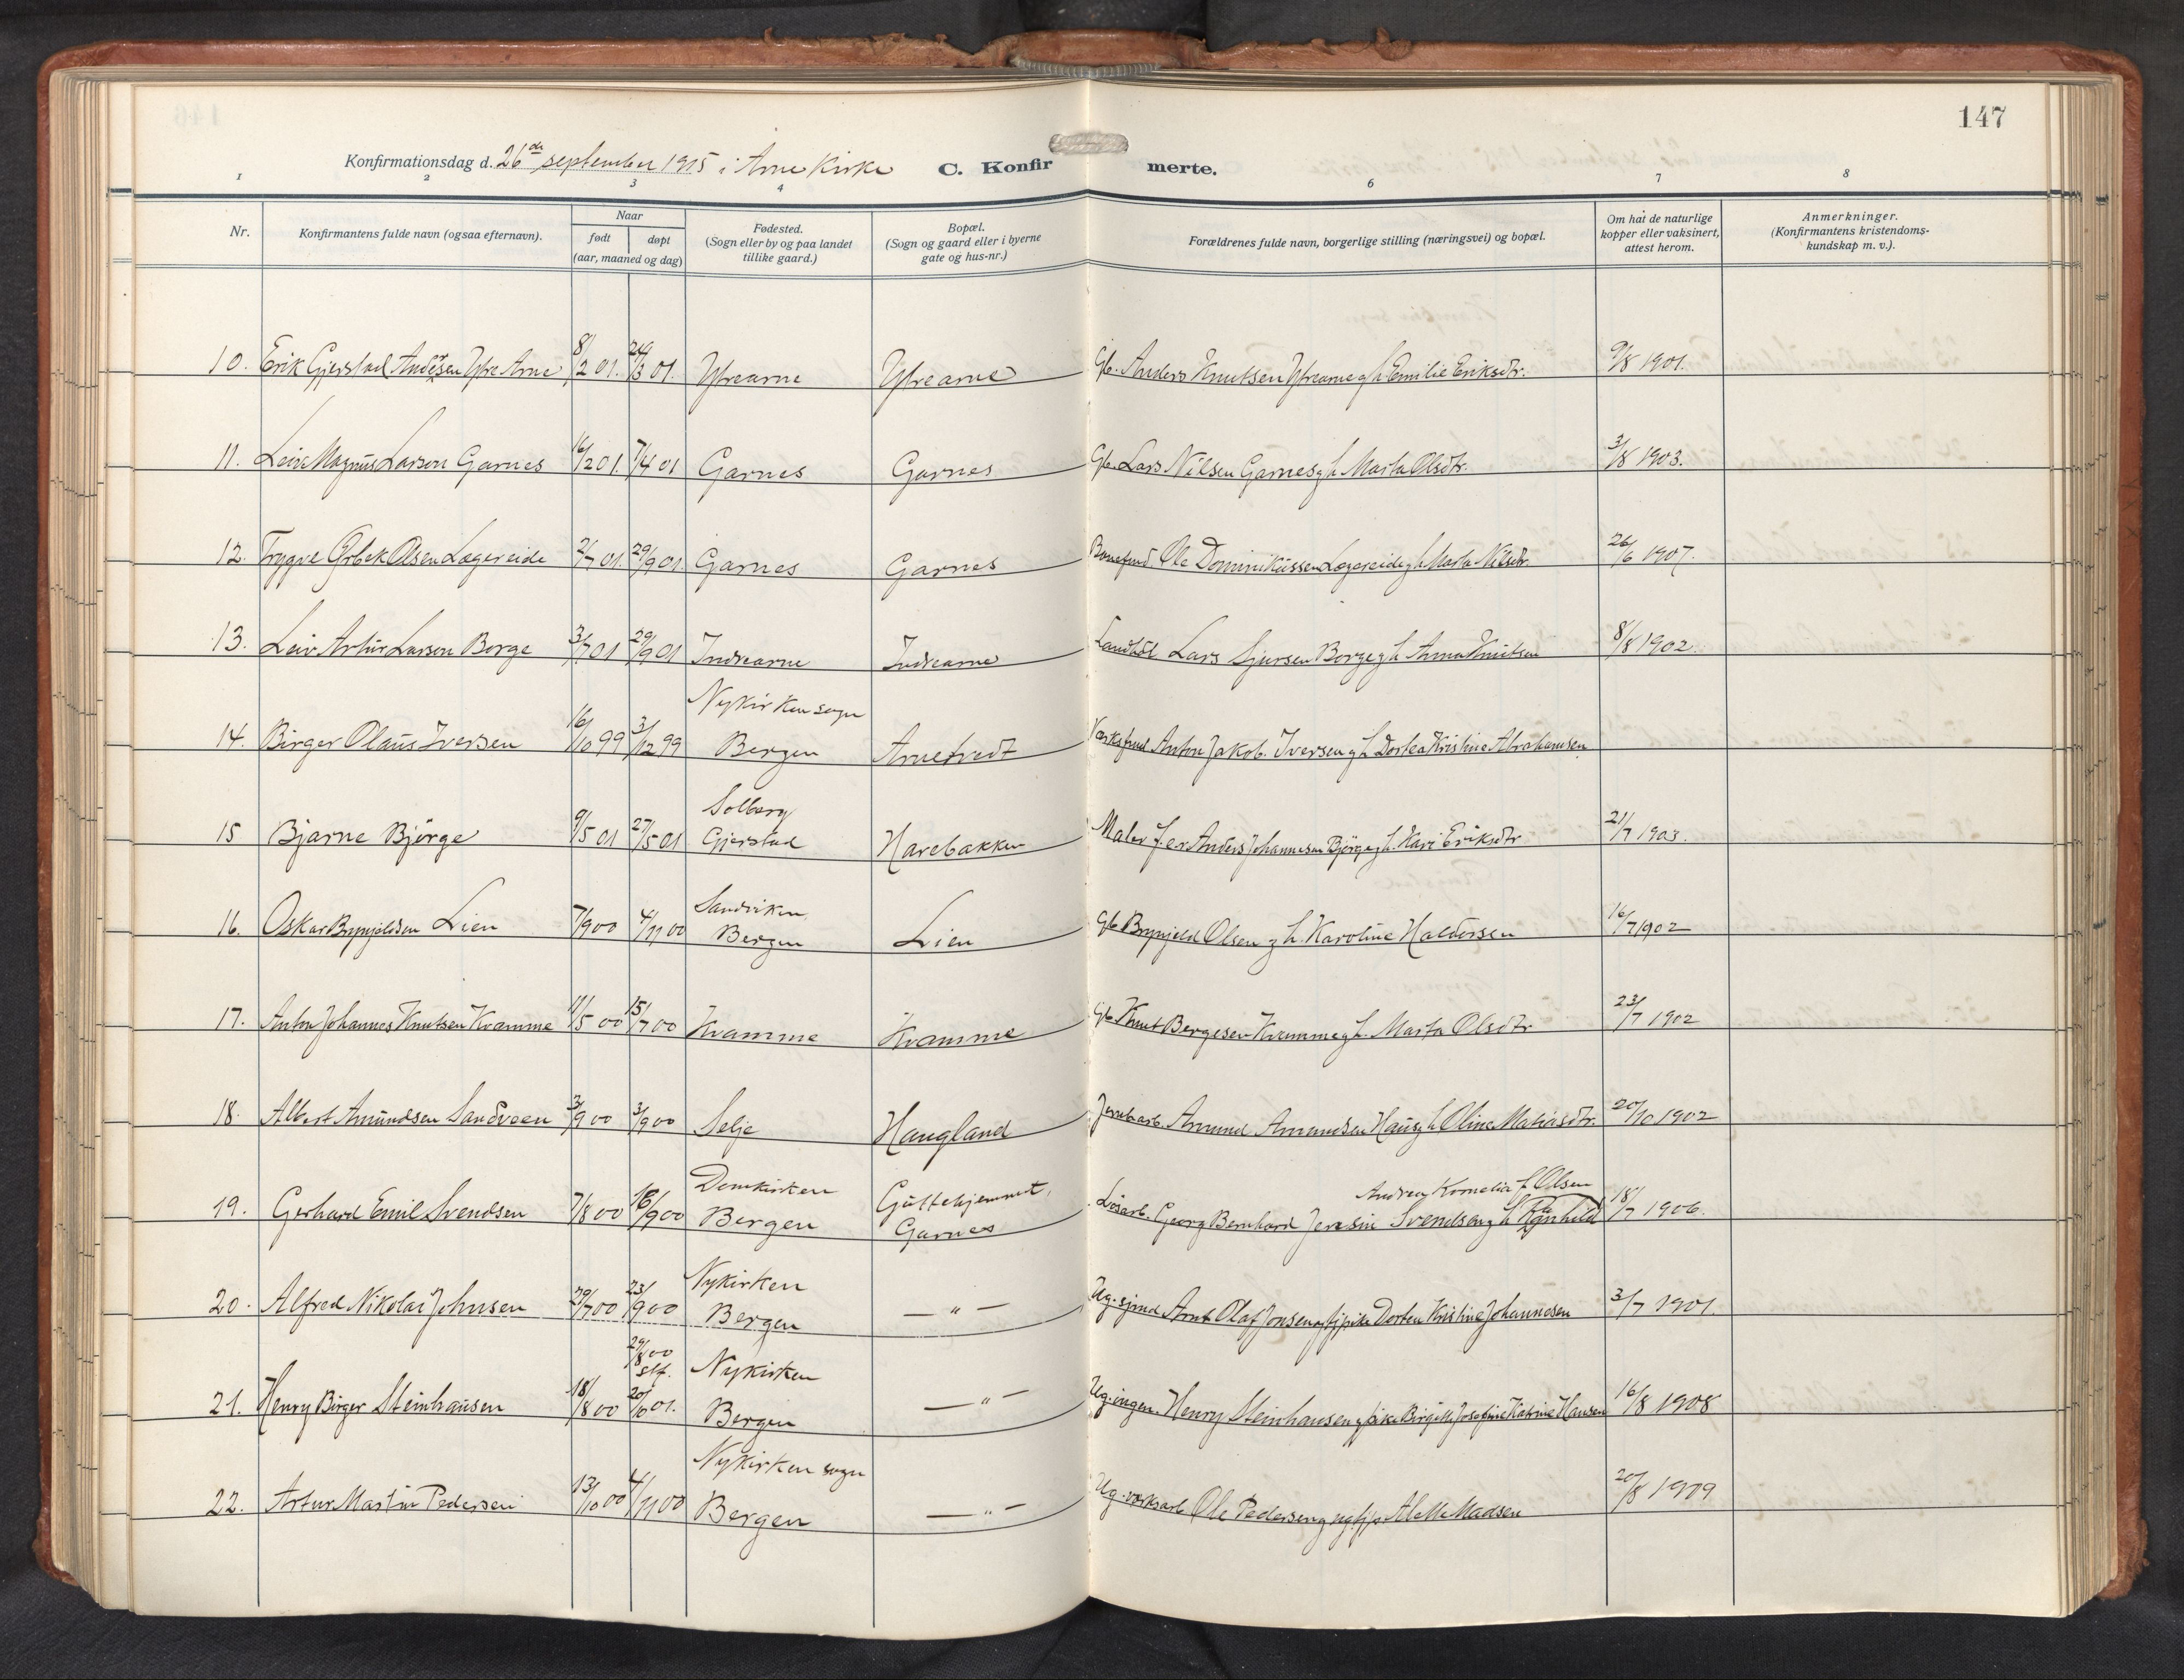 147
Konfirmationsdag d. 26de september 1915 i Arne Kirke C. Konfirmerte.
1 2 3 4 6 7 8
Nr. Konfirmantens fulde navn (ogsaa efternavn). Naar født døpt (aar, maaned og dag) Fødested. (Sogn eller by og paa landet tillike gaard.) Bopæl. (Sogn og gaard eller i byerne gate og hus-nr.) Forældrenes fulde navn, borgerlige stilling (næringsvei) og bopæl. Om hat de naturlige kopper eller vaksinert, attest herom. Anmerkninger. (Konfirmantens kristendoms-kundskap m. v.).
10. Erik Gjerstad Andersen Ytre Arne 8/2 01. 24/3 01. Ytrearne Ytrearne Gb. Anders Knutsen Ytrearne g h Emilie Eriksdtr. 9/8 1901.
11. Leiv Magnus Larsen Garnes 16/2 01. 7/4 01 Garnes Garnes Gb. Lars Nilsen Garnes g h Marta Olsdtr. 3/8 1903.
12. Trygve Ørbek Olsen Lægereide 2/7 01. 29/9 01. Garnes Garnes Ole Dominikussen Lægereide g h Marta Nilsdtr. 26/6 1907.
13. Leiv Artur Larsen Borge 3/7 01 29/9 01 Indrearne Indrearne Landhdl Lars Sjursen Borge g h Anna Knutsen 8/8 1902.
14. Birger Olaus Iversen 16/10 99 3/12 99 Nykirken sogn Bergen Arnetvedt Verksfmd Anton Jakob Iversen g h Dortea Kristine Abrahamsen
15 Bjarne Bjørge 9/5 01 27/5 01 Solberg Gjerstad Harebakken Maler f. ex Anders Johannesen Bjørge g h. Kari Eriksdtr 21/7 1903.
16. Oskar Brynjeldsen Lien 7/9 00 4/11 00 Sandviken Bergen Lien Gb Brynjeld Olsen g h. Karoline Haldorsen 16/7 1902
17. Anton Johannes Knutsen Kvamme 11/5 00 15/7 00 Kvamme Kvamme Gb Knut Bergesen Kvamme g h. Marta Olsdtr 23/7 1902
18. Albert Amundsen Sandveen 3/9 00 3/9 00 Selje Haugland Jernbarb. Amund Amundsen Haus g h Oline Matiasdtr. 20/10 1902
19. Gerhard Emil Svendsen 7/8 00 16/9 00 Domkirken Bergen Guttehjemmet, Garnes Løsarb. Georg Bernhard Svendsen g h Andrea Kornelia f. Olsen 18/7 1906.
20. Alfred Nikolai Johnsen 29/7 00 23/9 00 Nykirken Bergen — " — Ug. sjmd Arnt Olaf Jonsen og pike Dortea Kristine Johannesen 3/7 1901.
21. Henry Birger Steinhausen 18/8 00 29/8 00 stf. 20/10 01. Nykirken Bergen — " — Ug. ingen. Henry Steinhausen g pike Birgitte Josefine Katrine Hansen 16/8 1908
22. Artur Martin Pedersen 13/10 00 4/11 00 Nykirken sogn Bergen — " — Ug. verksarb Ole Pedersen Alette Madsen 20/8 1909